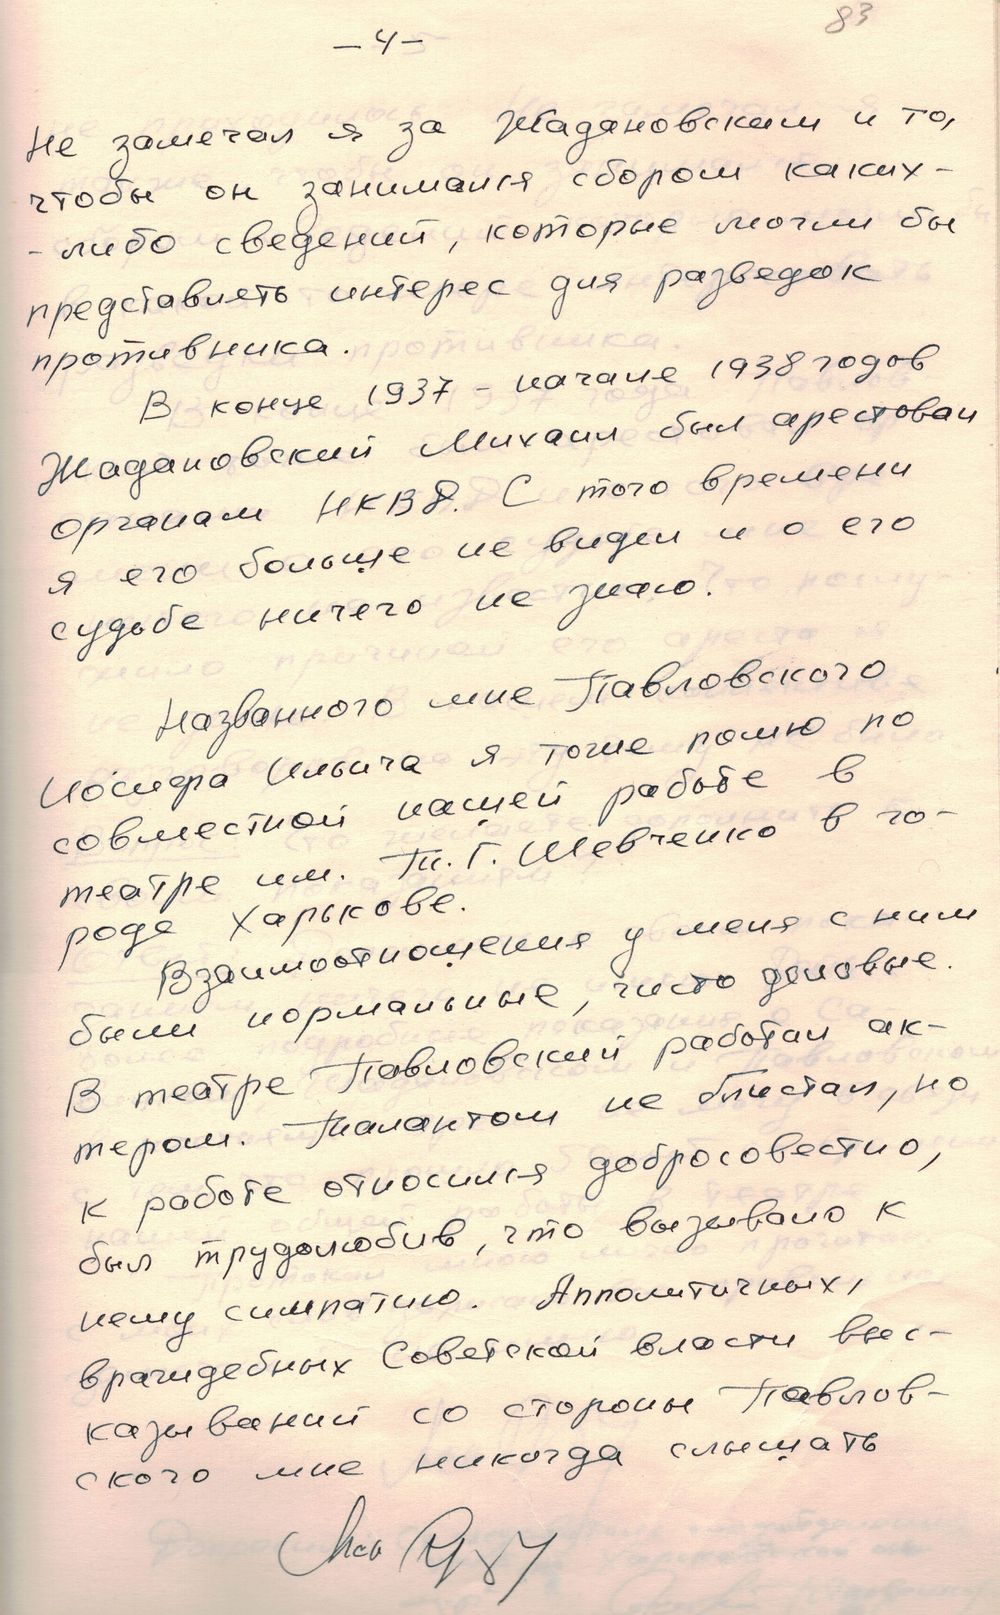 83
- 4 -
Не замечал я за Жадановским и то,
чтобы он занимался сбором каких-
- либо сведений, которые могли бы
представлять интерес для разведок
противника.
В конце 1937 - начале 1938 годов
Жадановский Михаил был арестован
органам НКВД. С того времени
я его больше не видел и о его
судьбе ничего не знаю.
Названного мне Павловского
Иосифа Ильича я тоже помню по
совместной нашей работе в
театре им. Т. Г. Шевченко в го-
роде Харькове.
Взаимоотношения у меня с ним
были нормальные, чисто деловые.
В театре Павловский работал ак-
тером. Талантом не блистал, но
к работе относился добросовестно,
был трудолюбив, что вызывало к
нему симпатию. Апполитичных,
враждебных Советской власти выс-
казываний со стороны Павлов-
ского мне никогда слышать